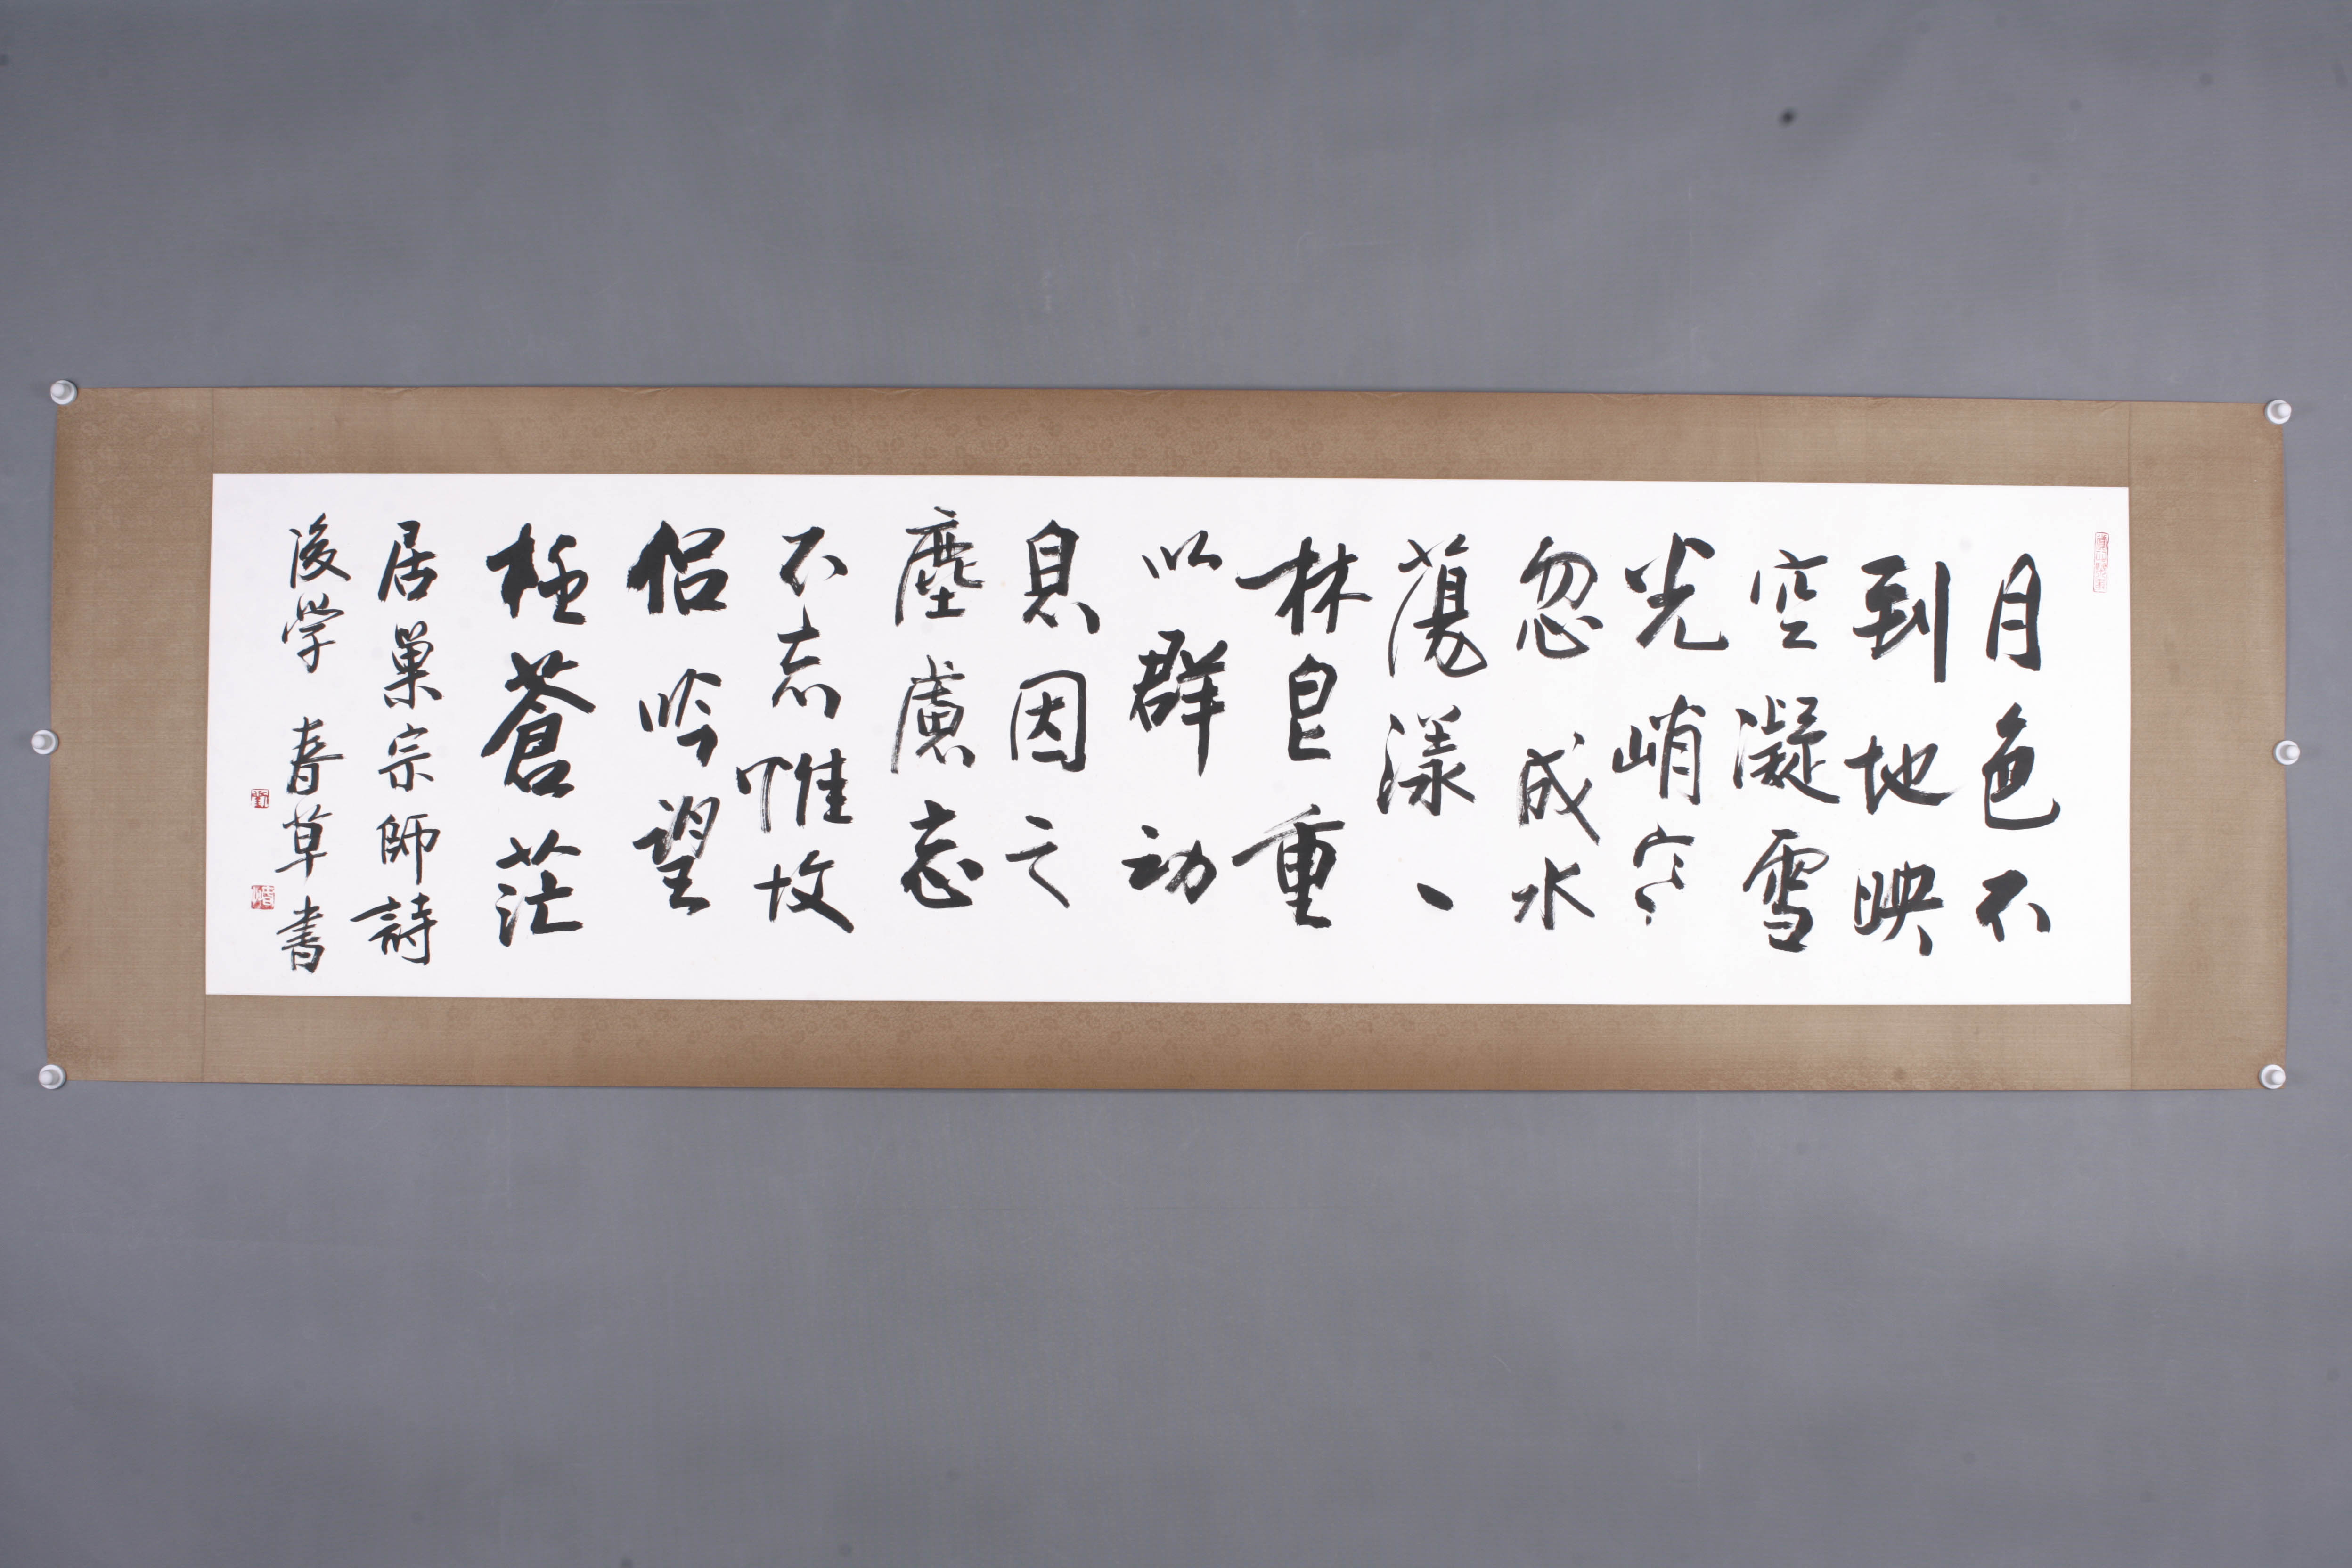 月色不
到地映
空凝雪
光峭宇
忽成水
蕩漾、
林皀重
以群动
息因之
塵慮忘
不忘惟故
侣吟望
極蒼茫
居巢宗師詩
後学 春草書